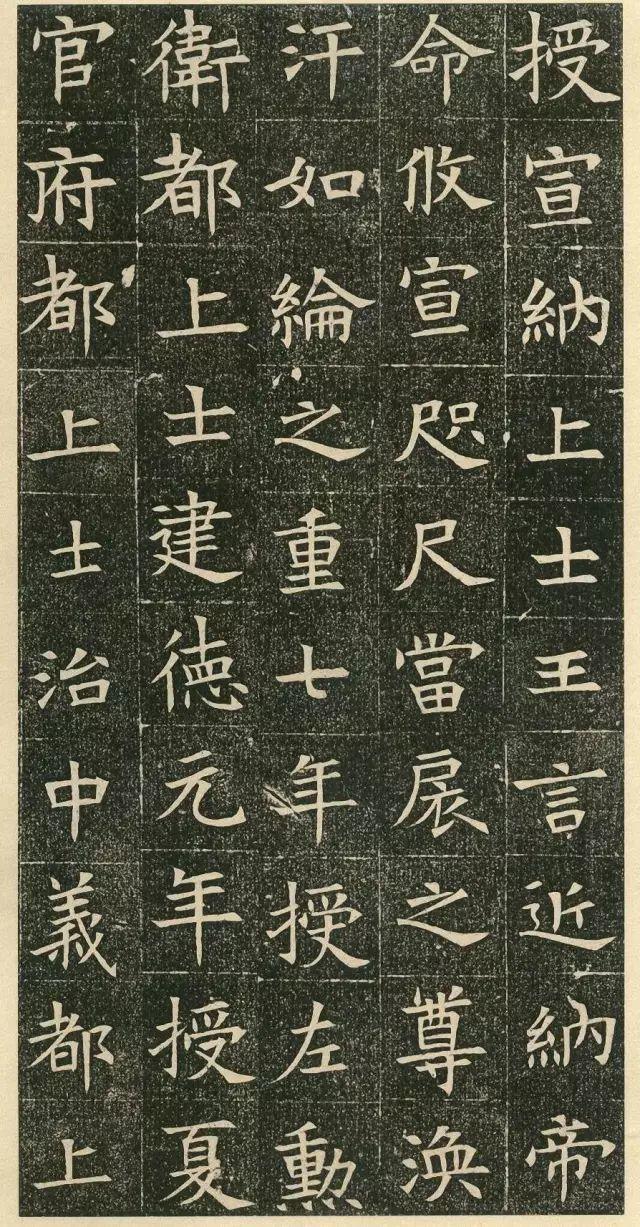 授宣納上士王言近納帝
命攸宣咫尺當扆之尊渙
汗如綸之重七年授左勳
衛都上士建德元年授夏
官府都上士治中義都上